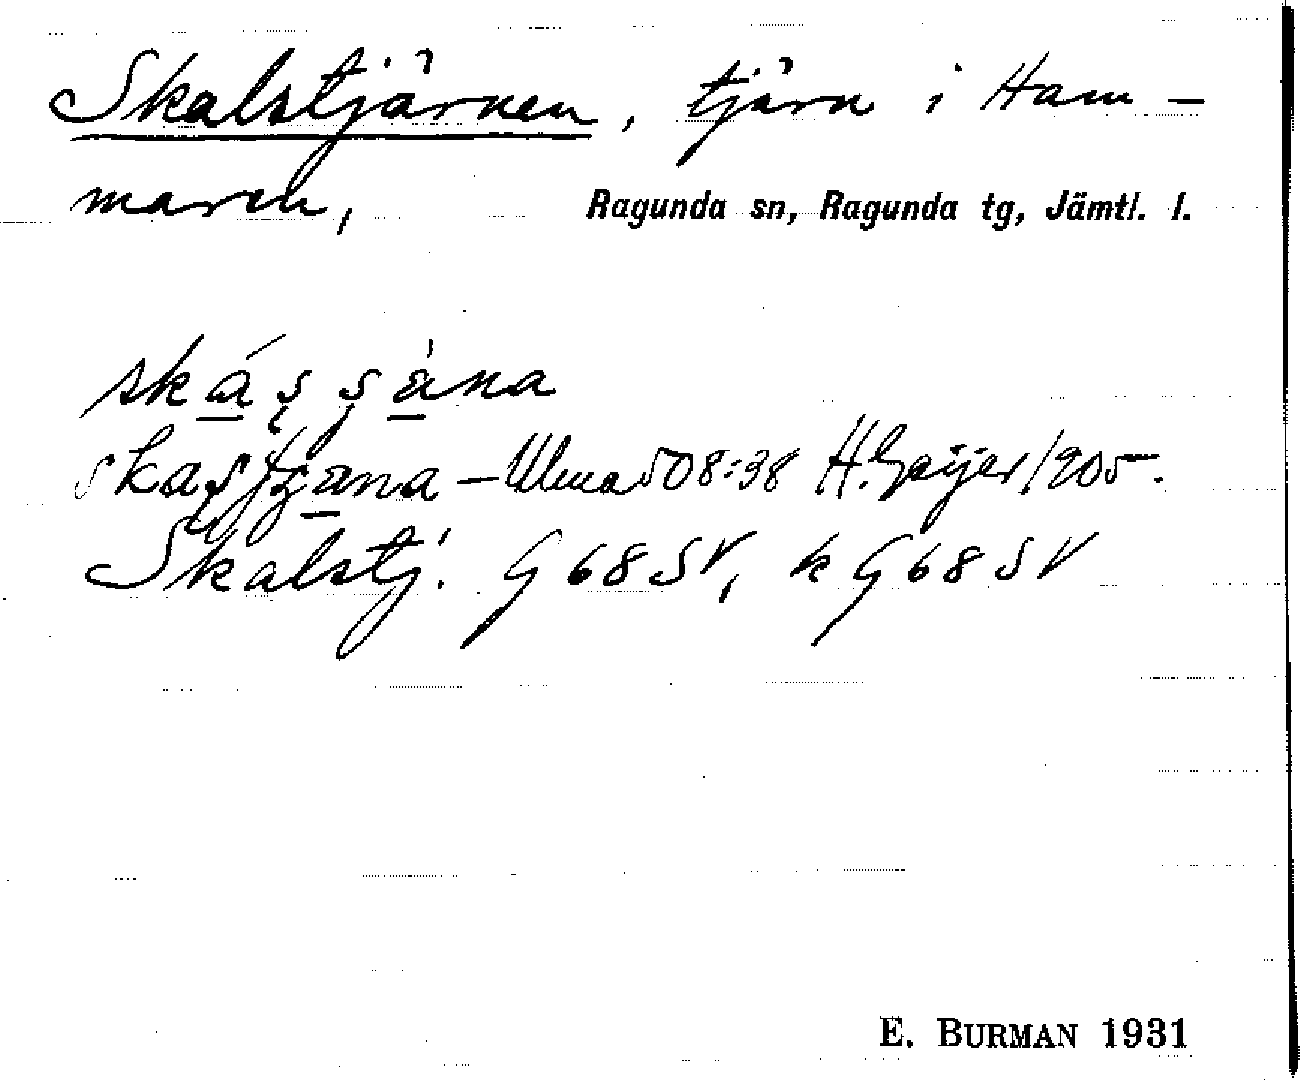 Skalstjärnen, tjärn i Ham-
maren, Ragunda sn, Ragunda tg, Jämtl. l.
Ulma 508:38 H. Geijer 1905.
Skalstj. G 68 SV, k G 68 SV
E. BURMAN 1931